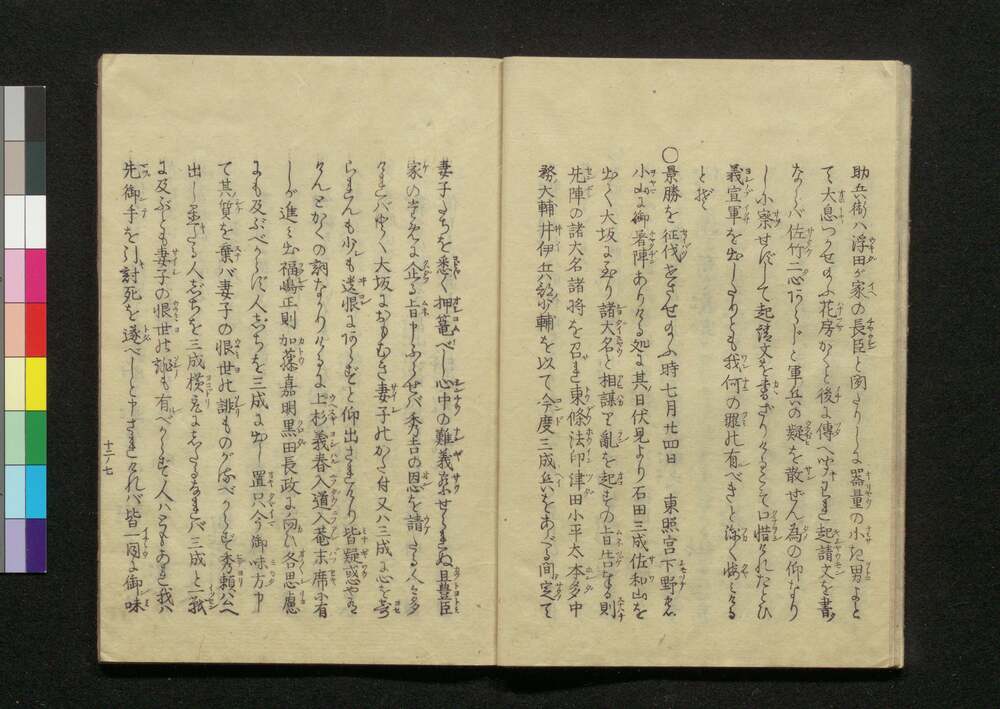 助兵衛ハ浮田が家の長臣と聞たりしに器量の小き男よと
て大息つかせ給ふ花房かくと後に傳へ聞てわれ起請文を書
ならバ佐竹二心あらじと軍兵の疑を散ぜん為の仰なり
し小察せずして起請文を書ざりけることこそ口惜けれたとひ
義宣軍を出したりとも我何の罪に有べきと深く悔しける
とぞ
〇景勝を征伐せさせ給ふ時七月廿四日 東照宮下野ノ國
小山に御着陣ありける処に其日伏見より石田三成佐和山を
出て大坂に至り諸大名と相謀て亂を起すの旨告来る則
先陣の諸大名諸将を召され東條法印津田小平太本多中
務大輔井伊兵部少輔を以て今度三成兵をあぐる間定て
妻子たちを悉く押籠べし心中の難義察せらるゝぬ且豊臣
家の為に企る旨申ふらせバ秀吉の恩を請たる人々多
けれバ早く大坂におもむき妻子にかた付又ハ三成に心を寄
らまんも少しも遺恨にあるべからずと仰出されけり皆疑惑やあり
けんとかくの詞なかりけるに上杉義春入道入菴末席に有
しが進ミ出福嶋正則加藤嘉明黒田長政に向ひ各思慮
にも及ぶべからず人志ちを三成に出し置只今御味方申
て其質を棄バ妻子の恨世の誹ものがるべからず秀頼公へ
出し置たる人志ちを三成横どりにしたるなれバ三成と一戦
に及ぶとも妻子の恨世の誹も有べからず人ハともあれ我ハ
先御手を引討死を遂べしと申されけれバ皆一同に御味
十三ノ七